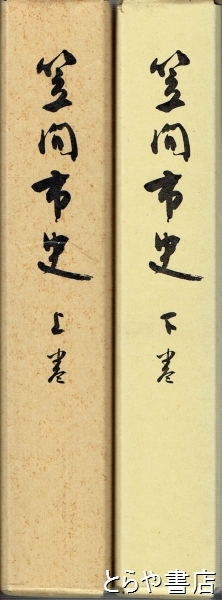 笠間市史 上巻
笠間市史 下巻
とらや書店